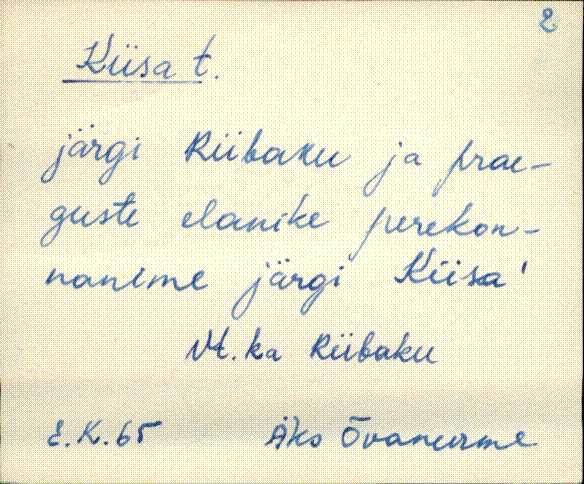 2
Kiisa t.
järgi Riibaku ja prae-
guste elanike perekon-
nanime järgi Kiisa'
Vt. ka Riibaku
E.K. 65 Äks Õvanurme